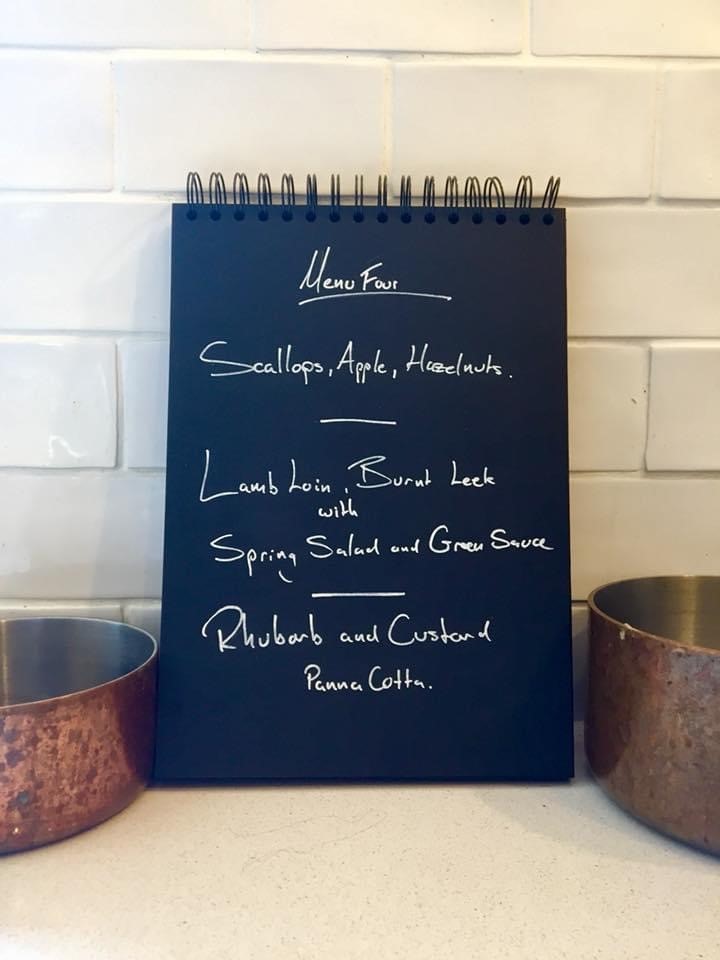 Menu Four
Scallops, Apple, Hazelnuts.
Lamb Loin, Burnt Leek
with
Spring Salad and Green Sauce
Rhubarb and Custard
Panna Cotta.